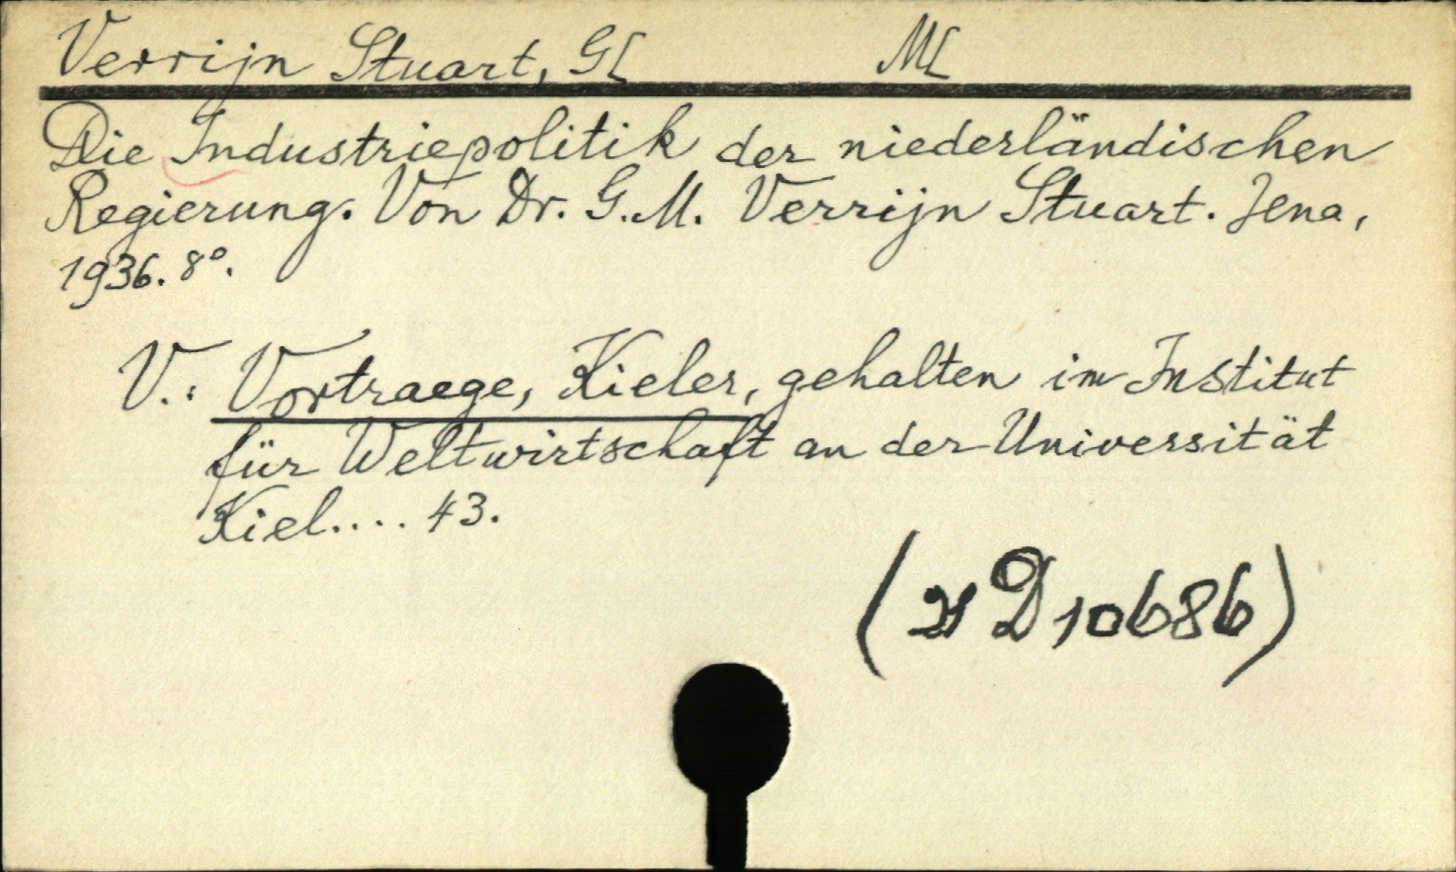 Verrijn Stuart, G[ M[
Die Industriepolitik der niederländischen
Regierung. Von Dr. G. M. Verrijn Stuart. Jena,
1936. 8°.
V.: Vortraege, Kieler, gehalten im Institut
für Weltwirtschaft an der Universität
Kiel.... 43.
( D 10686)